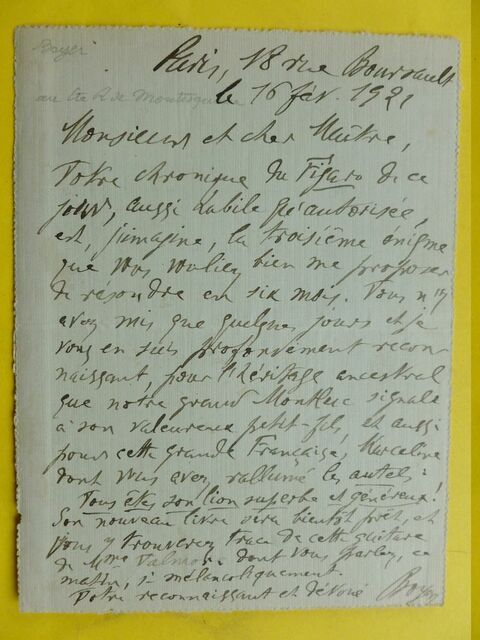 Boyer
au Cte R. de Montesquiou
Paris, 18 rue Boursault
le 16 fév. 1921
Monsieur et cher Maître,
Votre chronique du Figaro de ce
jour, aussi habile qu'autorisée,
est, j'imagine, la troisième énigme
que vous vouliez bien me proposer
de résoudre en six mois. Vous n'y
avez mis que quelques jours et je
vous en suis profondément recon-
naissant, pour l'héritage ancestral
que notre grand Montluc signale
à son valeureux petit-fils, et aussi
pour cette grande Française, Marceline
dont vous avez rallumé les autels !
Vous êtes son lion superbe et généreux !
Son nouveau livre sera bientôt prêt, et
vous y trouverez trace de cette guitare
de Mme Valmore dont vous parlez, ce
matin, si mélancoliquement.
Votre reconnaissant et dévoué
Boyer